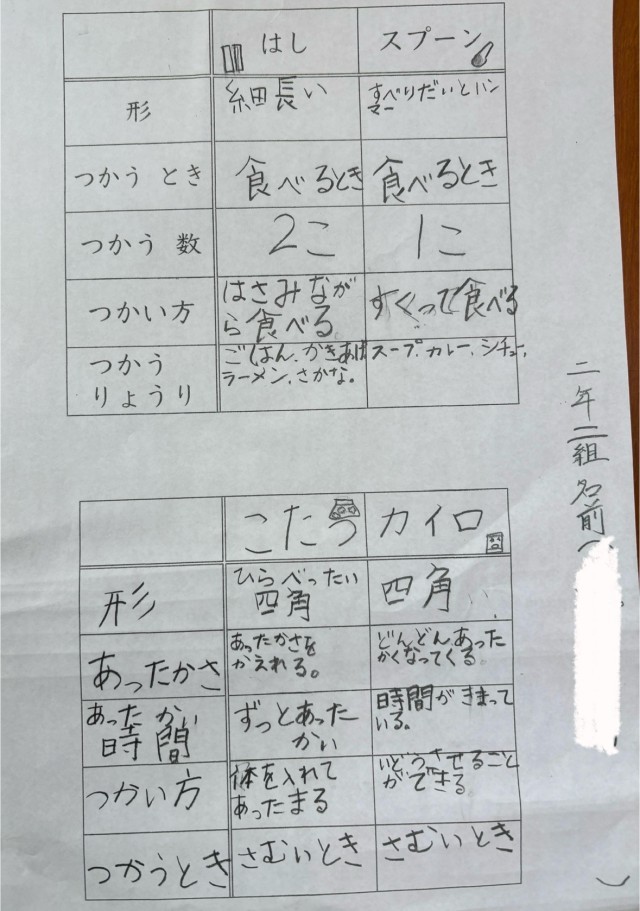 はし スプーン
形 細長い すべりだいとハン
マー
つかう とき 食べるとき 食べるとき
つかう 数 2こ 1こ
つかい方 はさみなが すくって食べる
ら食べる
つかう ごはん、かきあげ スープ、カレー、シチュー、
りょうり ラーメン、さかな。
こたつ カイロ
形 ひらべったい 四角い
四角
あったかさ あったかさを どんどんあった
かえれる。 かくなってくる
あったかい ずっとあった 時間がきまって
時間 かい いる。
つかい方 体を入れて いどうさせるごと
あったまる ができる
つかうとき さむいとき さむいとき
二年二組名前(